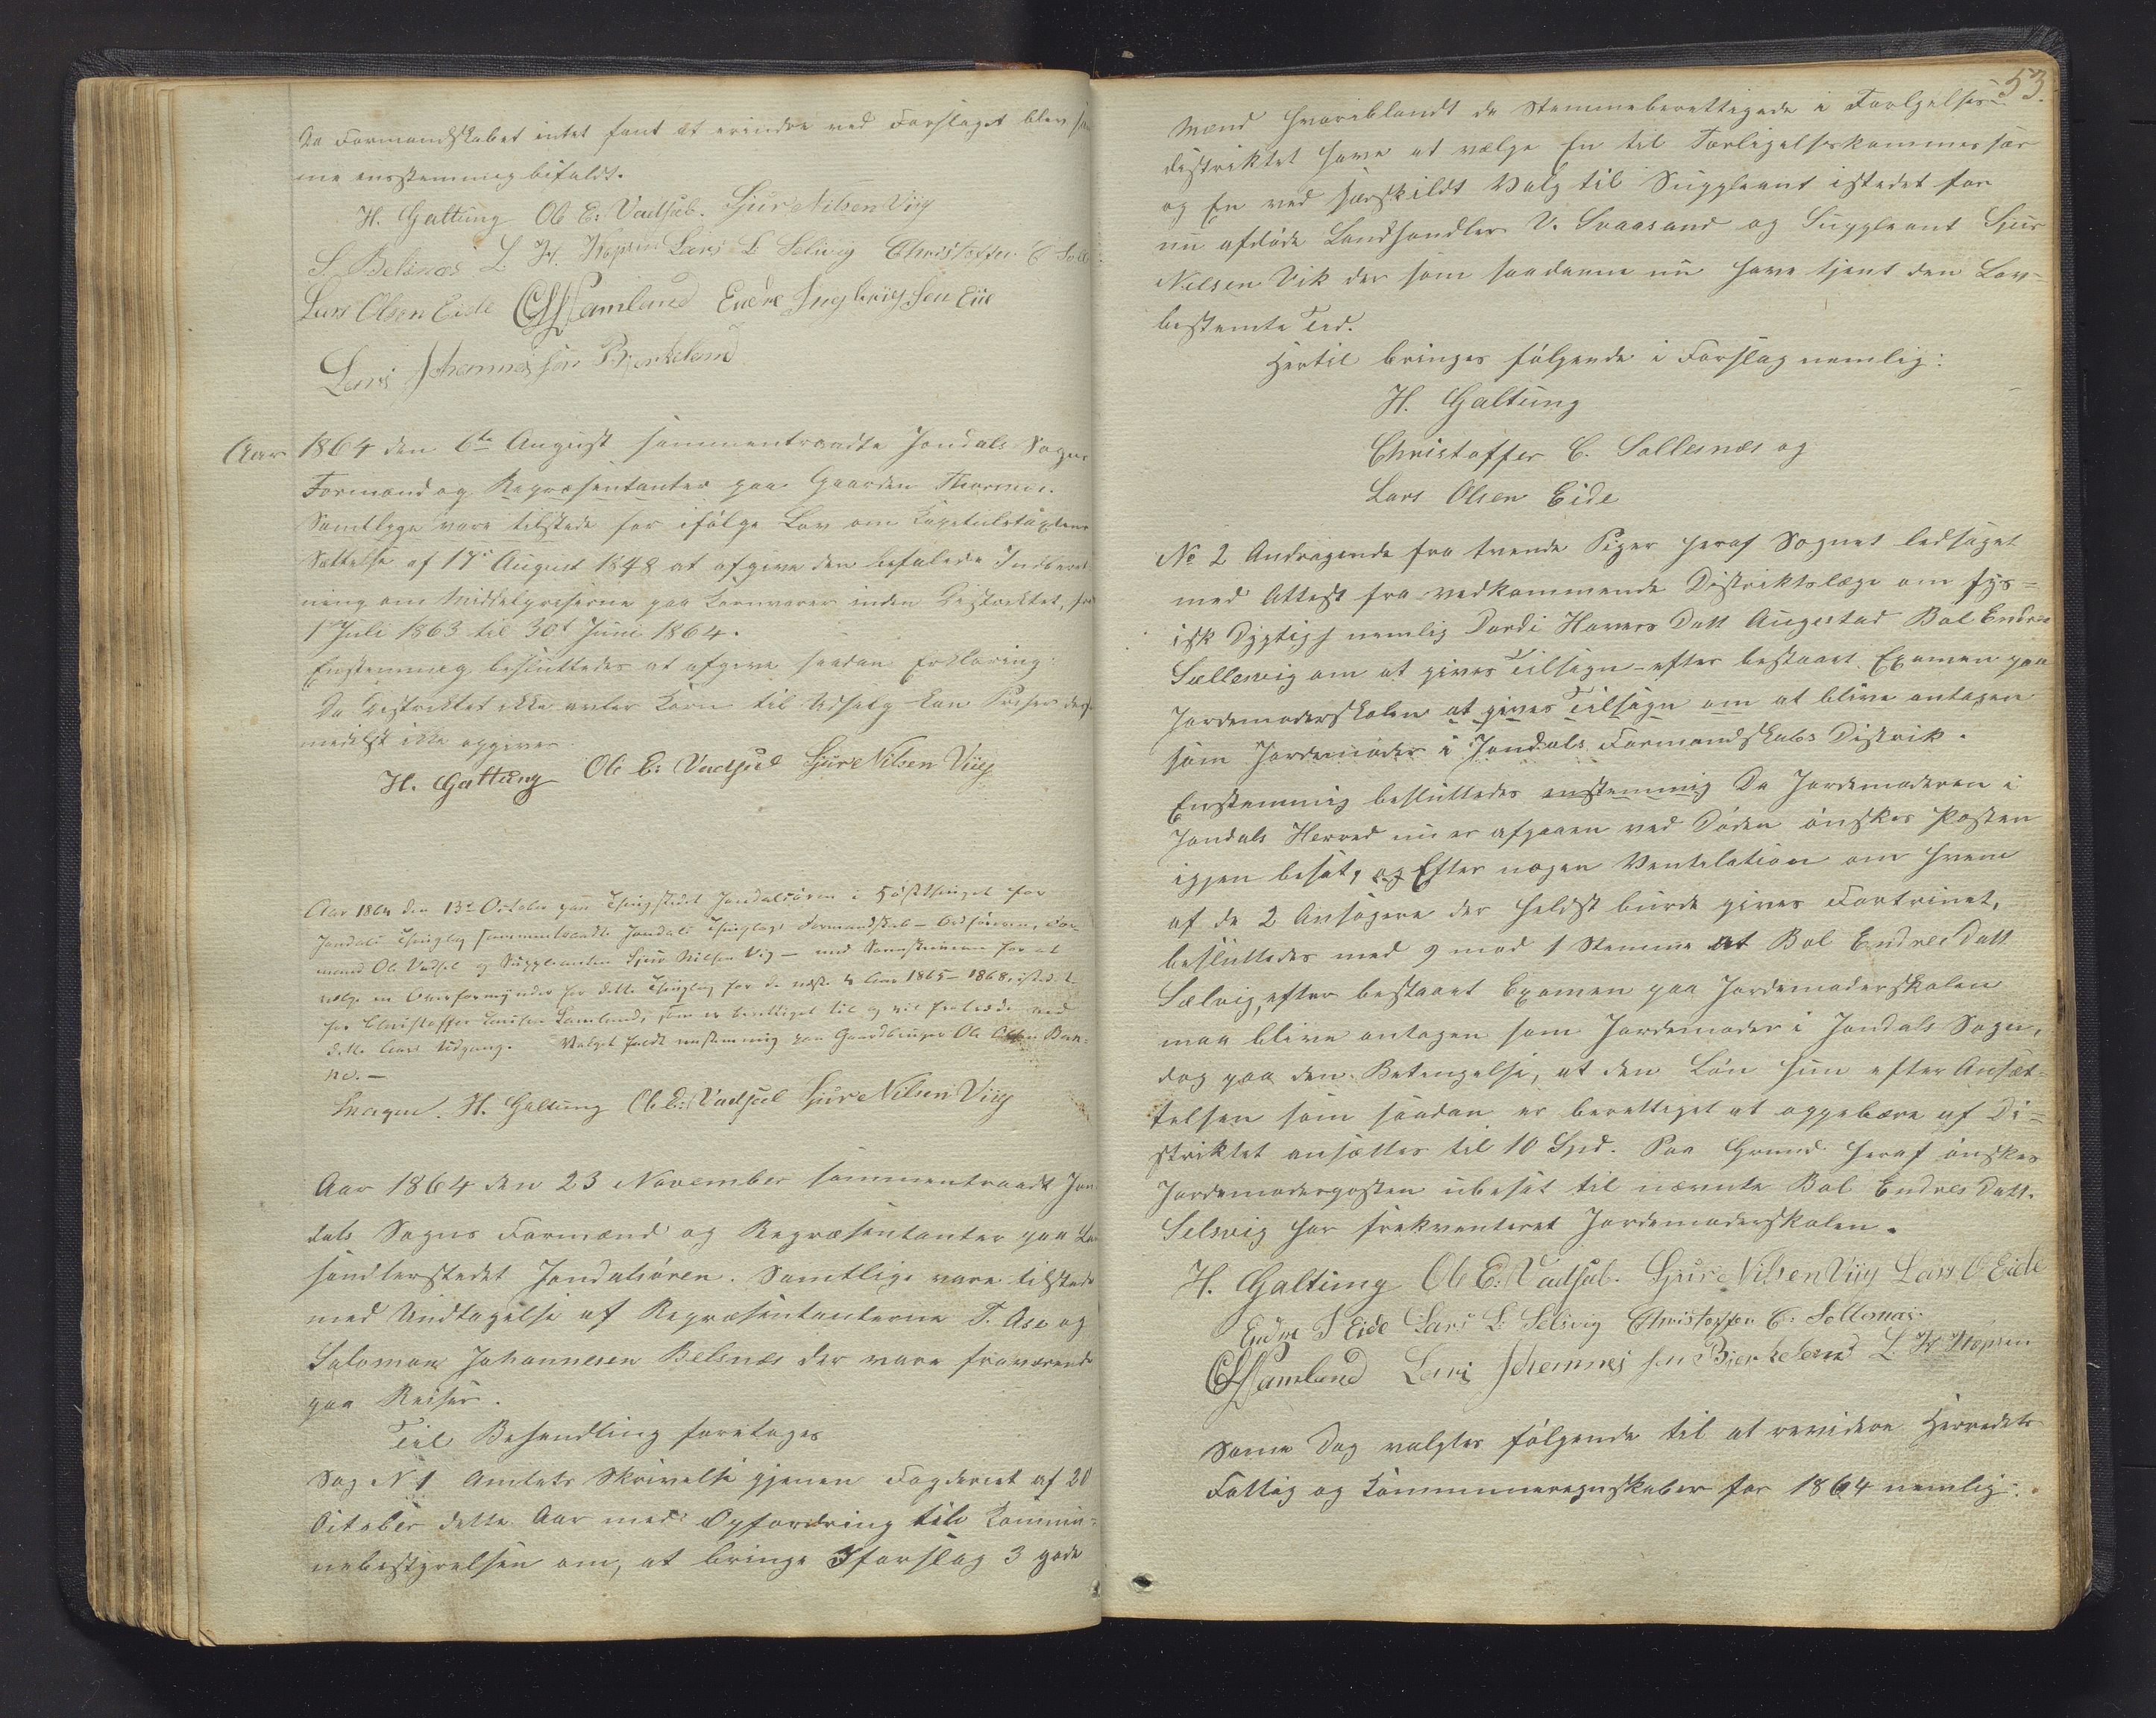 Da Formandskabet intet fant at erindre ved Forslaget blev sam
me enstemmig bifaldt.
H. Galtung Ole E: Vadsel. Sjur Nilsen Viig
S. Belsnæs L H. Hopsen Lars L: Selsvig Christoffer C Solles
Lars Olsen Eide CHSamland Endre Ingbrigtsen Eie
Lars Johannes sen Bjerkeland
Aar 1864 den 6te August sammentraadte Jondals Sogns
Formænd og Repræsentanter paa Gaarden
Samtlige vare tilstede for ifølge Lov om Kapitelstaxtens
Sættelse af 17de August 1848 at afgive den befalede Indberet
ning om Middelpriserne paa Kornvarer inden Distriktet, fra
1ste Juli 1863 til 30te Juni 1864.
Enstemmig besluttedes at afgive saadan Erklæring:
Da Distriktet ikke avler Korn til Udsalg kan Priser der
medelst ikke opgives.
H. Galtung Ole E: Vadsel Sjur Nilsen Viig
Aar 1864 den 13de October paa Thingstedet Jondalsøren i Høstthinget for
Jondals Thinglag sammentraadte Jondals Thinglags Formandskab – Ordføreren, For-
mand Ole Vadsel og Suppleanten Sjur Nilsen Vig – med Sorenskriveren for at
vælge en Overformynder for dette Thinglag for de næste 4 Aar 1865–1868, istedet
for Christoffer Samland, som er berettiget til og vil fratræde ved
dette Aars Udgang. Valget faldt enstemmig paa Gaardbruger Ole Olsen Bak-
ke. –
H. Galtung Ole E: Vadsel Sjur Nilsen Viig
Aar 1864 den 23 November sammentraadt Jon
dals Sogns Formænd og Repræsentanter paa Lan
handlerstedet Jondalsøren. Samtlige vare tilstede
med Undtagelse af Repræsentanterne T. Ase og
Salomon Johannesen Belsnæs der vare fraværende
paa Reiser.
Til Behandling foretoges
Sag N 1 Amtets Skrivelse gjenem Fogderiet af 20
October dette Aar med Opfordring til Kommu=
nebestyrelsen om, at bringe I forslag 3 gode
53.
Mænd hvoriblandt de Stemmeberettigede i Forligelses-
distriktet have at vælge En til Forligelseskommissær
og En ved særskildt Valg til Suppleant istedet for
nu afdøde Landhandler V. Svaasand og Suppleant Sjur
Nilsen Vik der som saadanne nu have tjent den Lov-
bestemte Tid.
Hertil bringes følgende i Forslag nemlig:
H. Galtung
Christoffer C. Sollesnæs og
Lars Olsen Eide
No 2 Andragende fra tvende Piger heraf Sognet ledsaget
med Attest fra vedkommende Distriktslæge om fys=
isk Dygtigh nemlig Dordi Havers Datt Augestad Bol Endres
Sællesvig om at gives Tilsagn – efter bestaaet Examen paa
Jordemoderskolen at gives Tilsagn om at blive antagen
som Jordemoder i Jondals Formandskabs Distrik.
Enstemmig besluttedes enstemmig Da Jordemoderen i
Jondals Herred nu er afgaaen ved Døden ønskes Posten
igjen besat, og Efter nogen Ventelation om hvem
af de 2 Ansøgere der heldst burde gives Fortrinet,
besluttedes med 9 mod 1 Stemme at Bol Endres Datt
Sælvig, efter bestaaet Examen paa Jordemoderskolen
maa blive antagen som Jordemoder i Jondals Sogn,
dog paa den Betingelse, at den Løn hun efter Ansæt-
telsen som saadan er berettiget at oppebære af Di=
striktet ansættes til 10 Spd. Paa Grund heraf ønskes
Jordemoderposten ubesat til nævnte Bol Endres Datt.
Selsvig har frekventeret Jordemoderskolen.
H. Galtung Ole E: Vadsel. Sjur Nilsen Viig Lars O Eide
Endre I Eide Lars L: Selsvig Christoffer C: Sollesnæs
CHSamland Lars Johannes sen Bjerkeland L. H Hopsen
Samme Dag valgtes følgende til at revidere Herredets
Fattig og Kommuneregnskaber for 1864 nemlig: